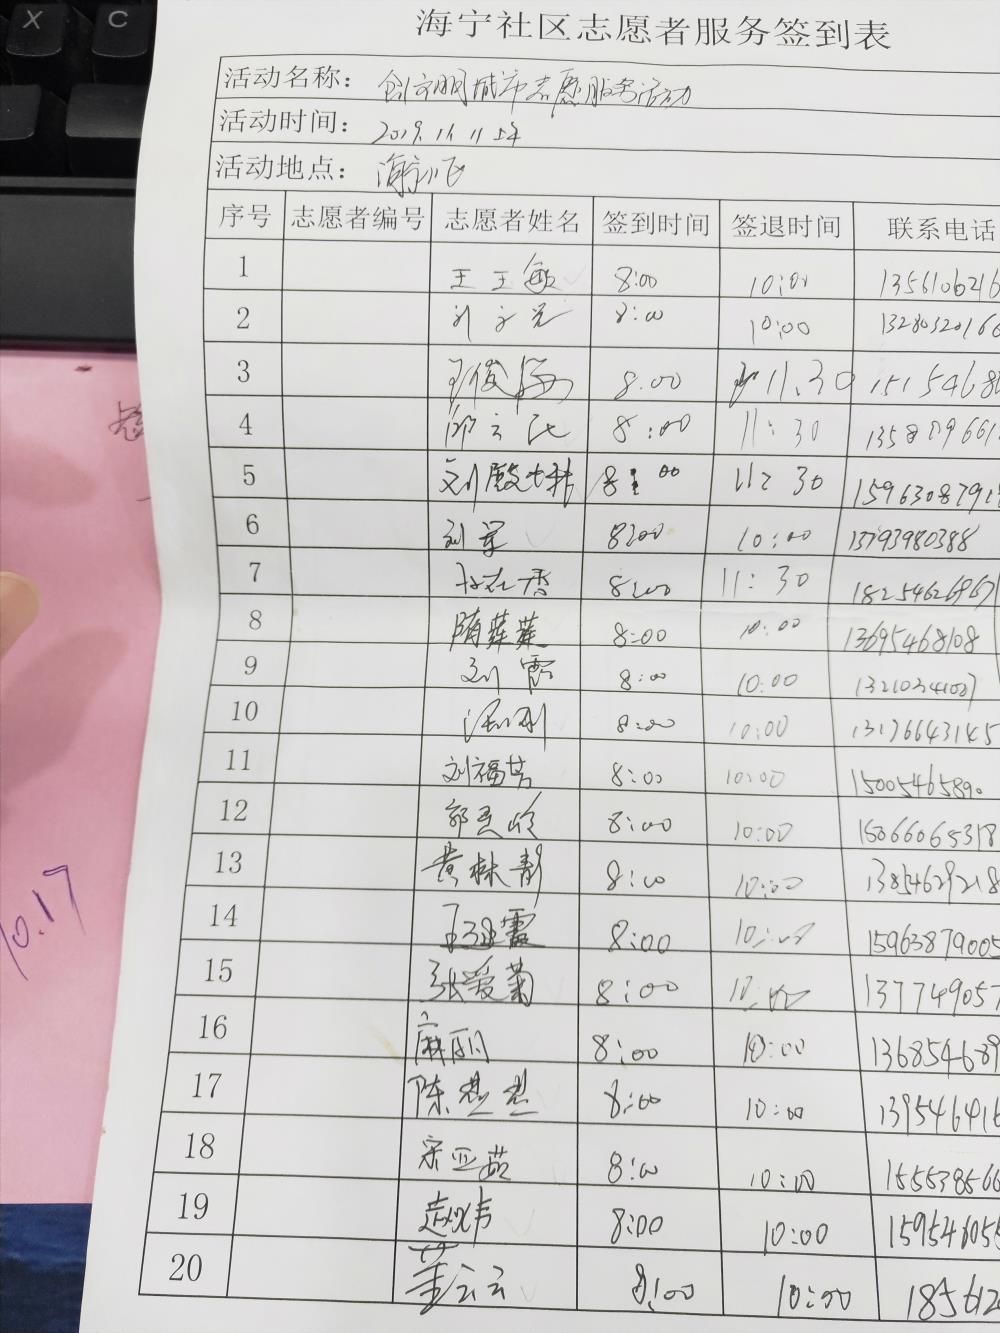 X C
海宁社区志愿者服务签到表
活动名称： 创文明城市志愿服务活动
活动时间： 2019.11.11 上午
活动地点：
序号 志愿者编号 志愿者姓名 签到时间 签退时间 联系电话
1 王王敏 8:00 10:00 1356106216
2 8:00 10:00 1328032016
3 王俊海 8:00 11:30 15154686
4 邱云 8:00 11:30
5 刘殿林 8:00 11:30 1596308791
6 刘军 8:00 10:00 15793980388
7 8:00 11:30
8 隋萍萍 8:00 10:00 13695468108
9 刘霞 8:00 10:00
10 8:00 10:00 13176643145
11 刘福芸 8:00 10:00 15005465890
12 郭 岭 8:00 10:00 15066065318
13 黄林静 8:00 10:00 13854629218
14 王 霞 8:00 10:00 15963879005
15 张爱菊 8:00 10:00 137749057
16 麻丽 8:00 10:00 136854689
17 陈 8:00 10:00 139546416
18 宋亚茹 8:00 10:00 155538566
19 赵 8:00 10:00 159546055
20 董云云 8:00 10:00 1856120
10.17